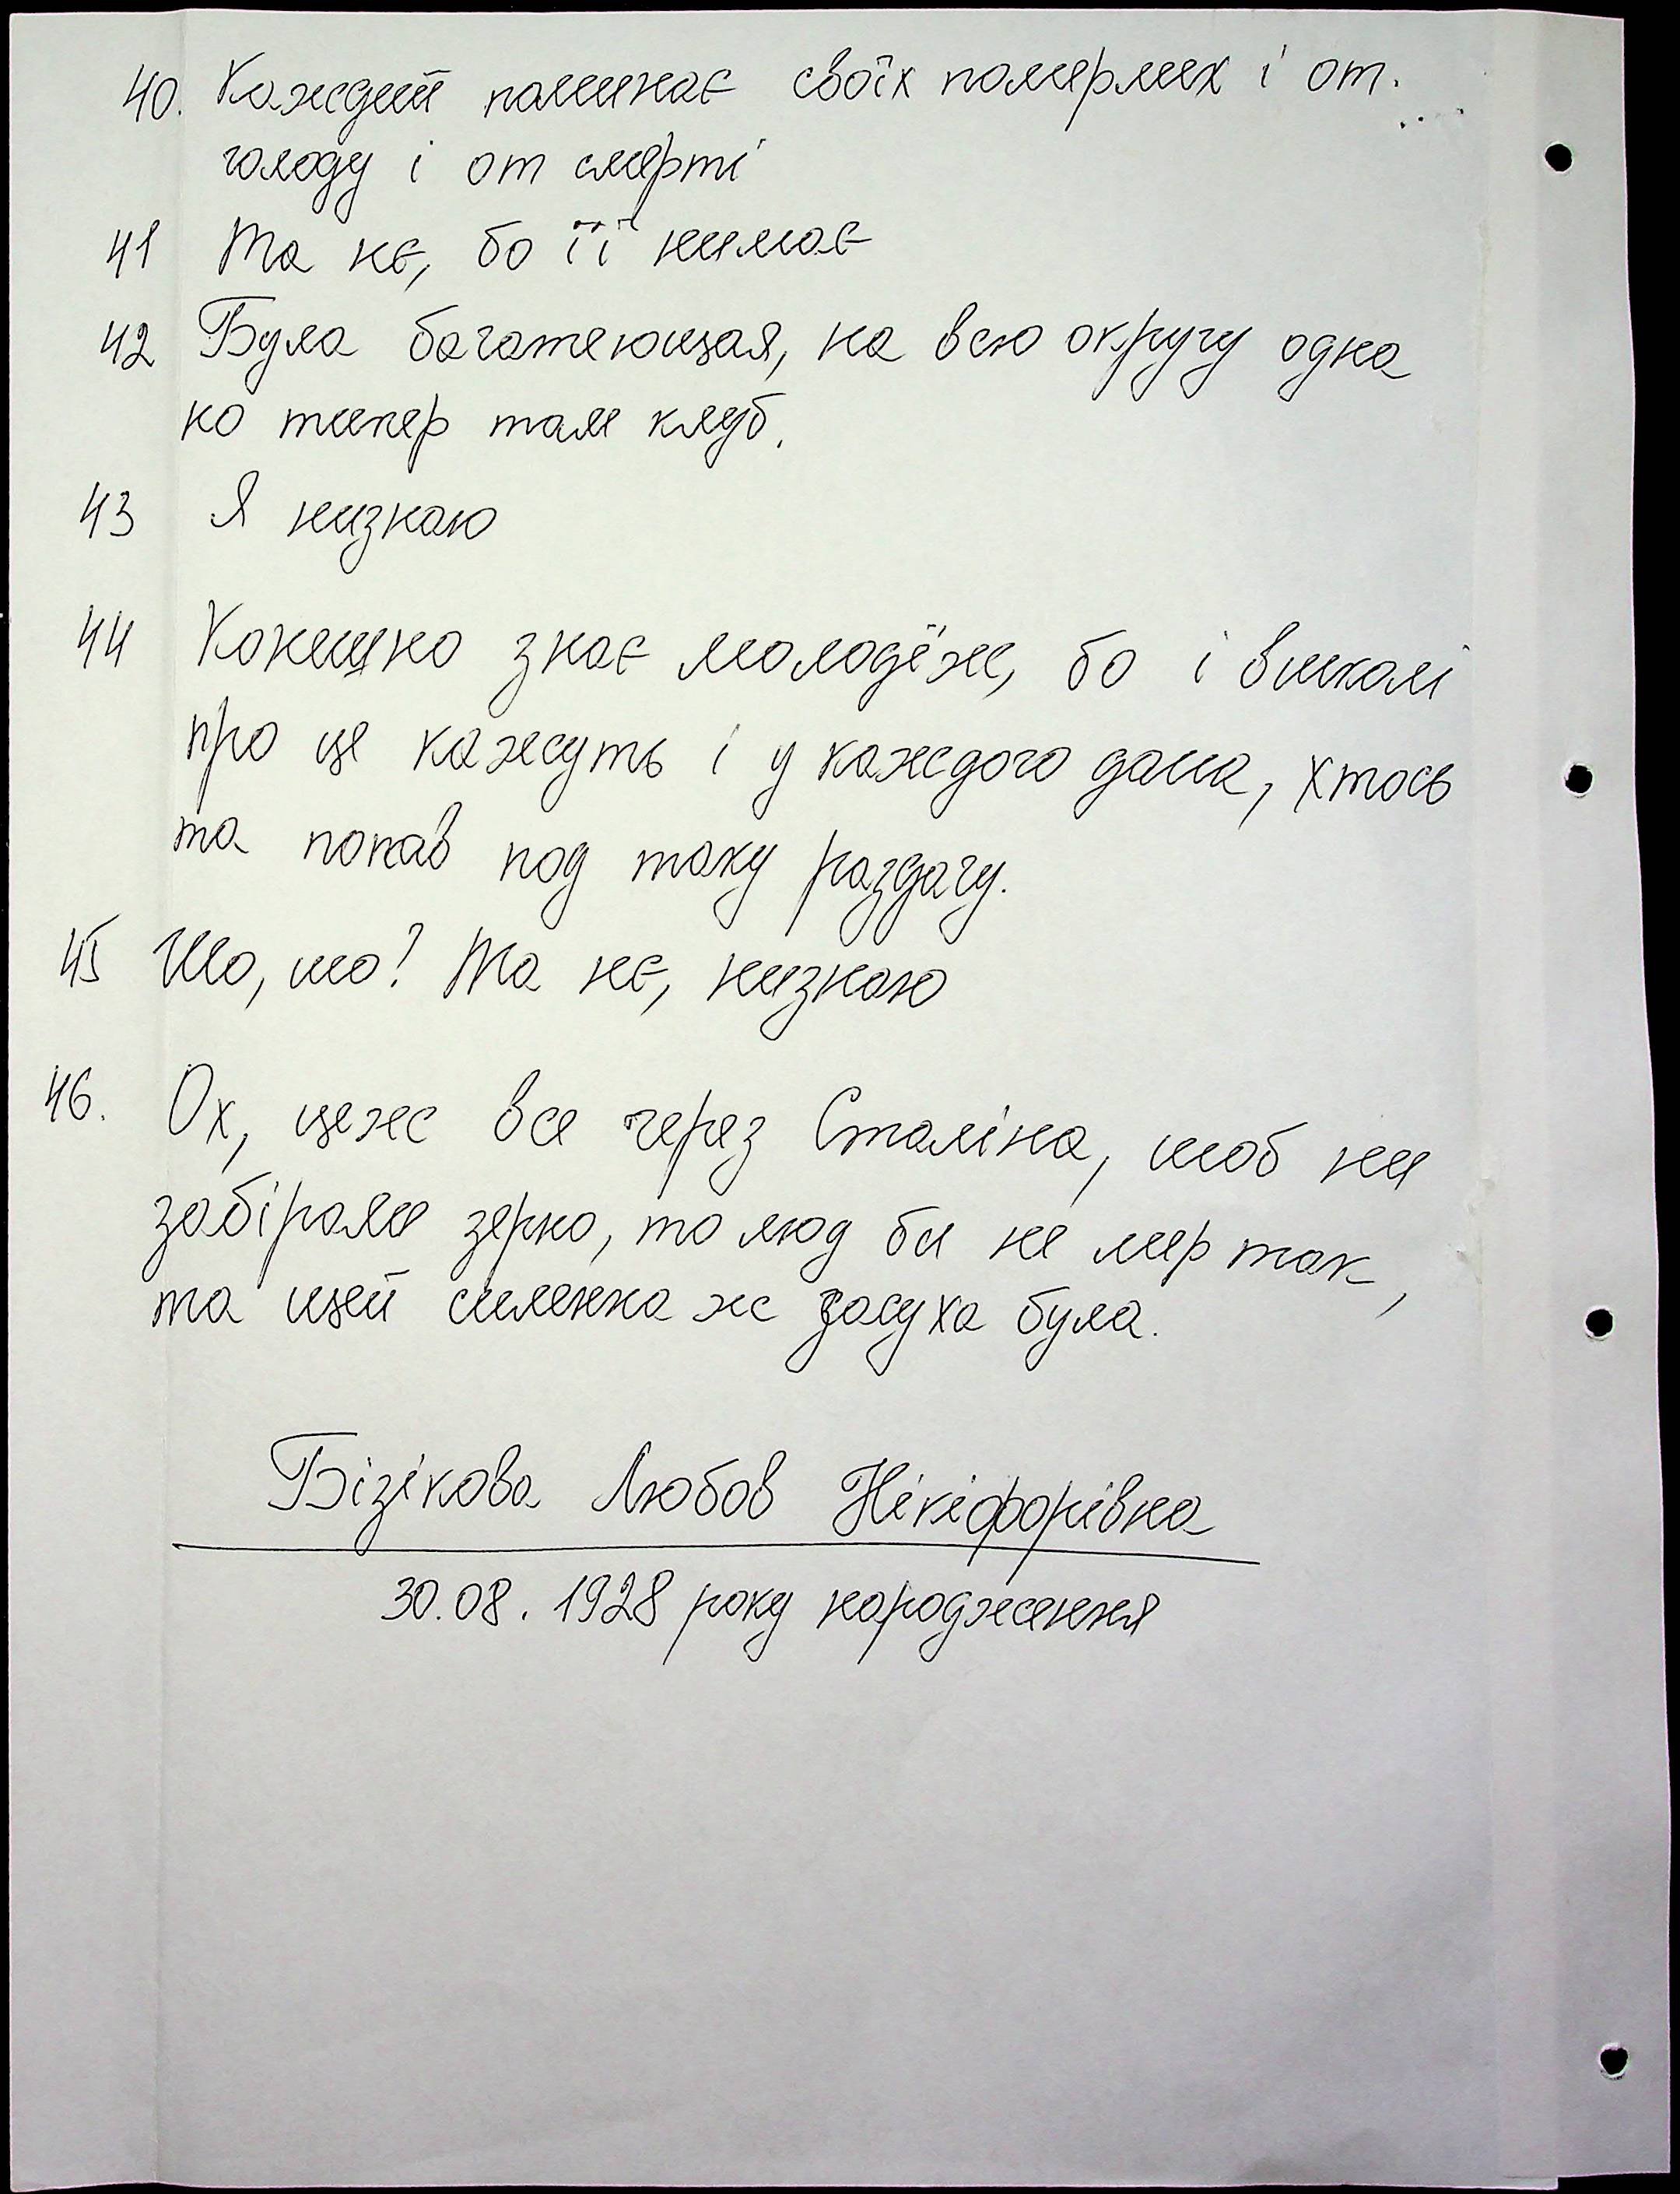 40. Каждий поминає своїх померлих і от.
голоду і от смерті
41 Та нє, бо її нимає
42 Була багатеющая, на всю округу одна
но типер там клуб.
43 Я низнаю
44 Конешно знає молодёж, бо і вшколі
про це кажуть і у каждого дома, хтось
та попав под таку раздачу.
45 Шо, шо? Та нє, низнаю
46. Ох, цеж все через Сталіна, шоб ни
забірали зерно, то люд би не мер так,
та щей силенна ж засуха була.
Бізікова Любов Нікіфорівна
30.08.1928 року народження